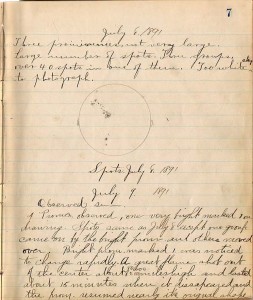 7
July 6, 1891
Three prominences not very large.
Large number of spots. Three groups
over 40 spots in one of them. Too white sky
to photograph.
Spots July 6 1891
July 9 1891
Observed sun
9 Proms observed, one very bright marked on
drawing. Spots same as July 8 except one group
came on by the bright prom and others moved
over. Bright prom marked 1 was noticed
to change rapidly. A great flame shot out
of the center about miles high and lasted
about 15 minutes when it disappeared and
the prom assumed nearly its original shape